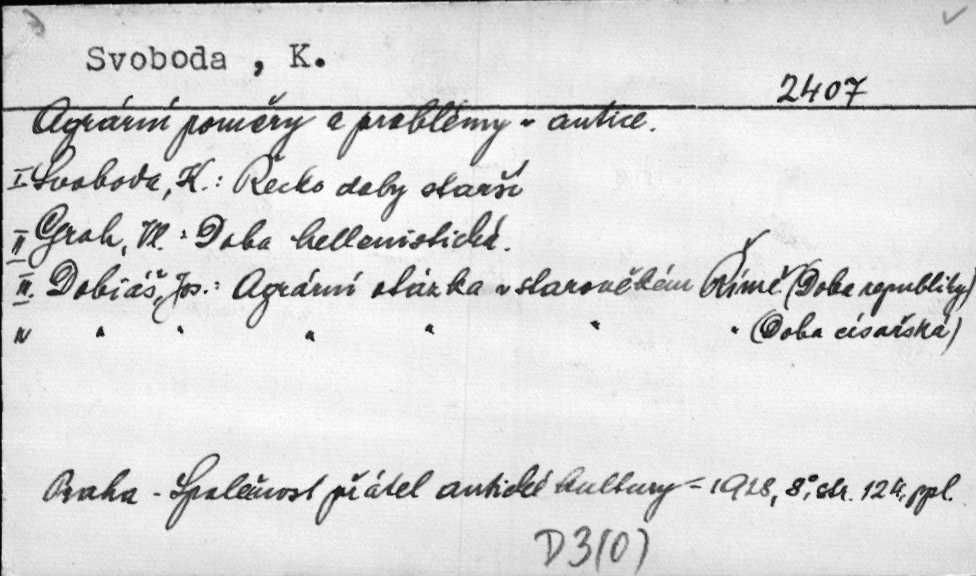 Svoboda , K.
2407
Agrární poměry a problémy v antice.
I Svoboda, K.: Řecko doby starší
II Groh, Vl.: Doba hellenistická.
III. Dobiáš, Jos.: Agrární otázka v starověkém Římě (Doba republiky)
IV " " " " " " (Doba císařská)
Praha - Společnost přátel antické kultury - 1928, 8°, str. 124, ppl.
D3(0)